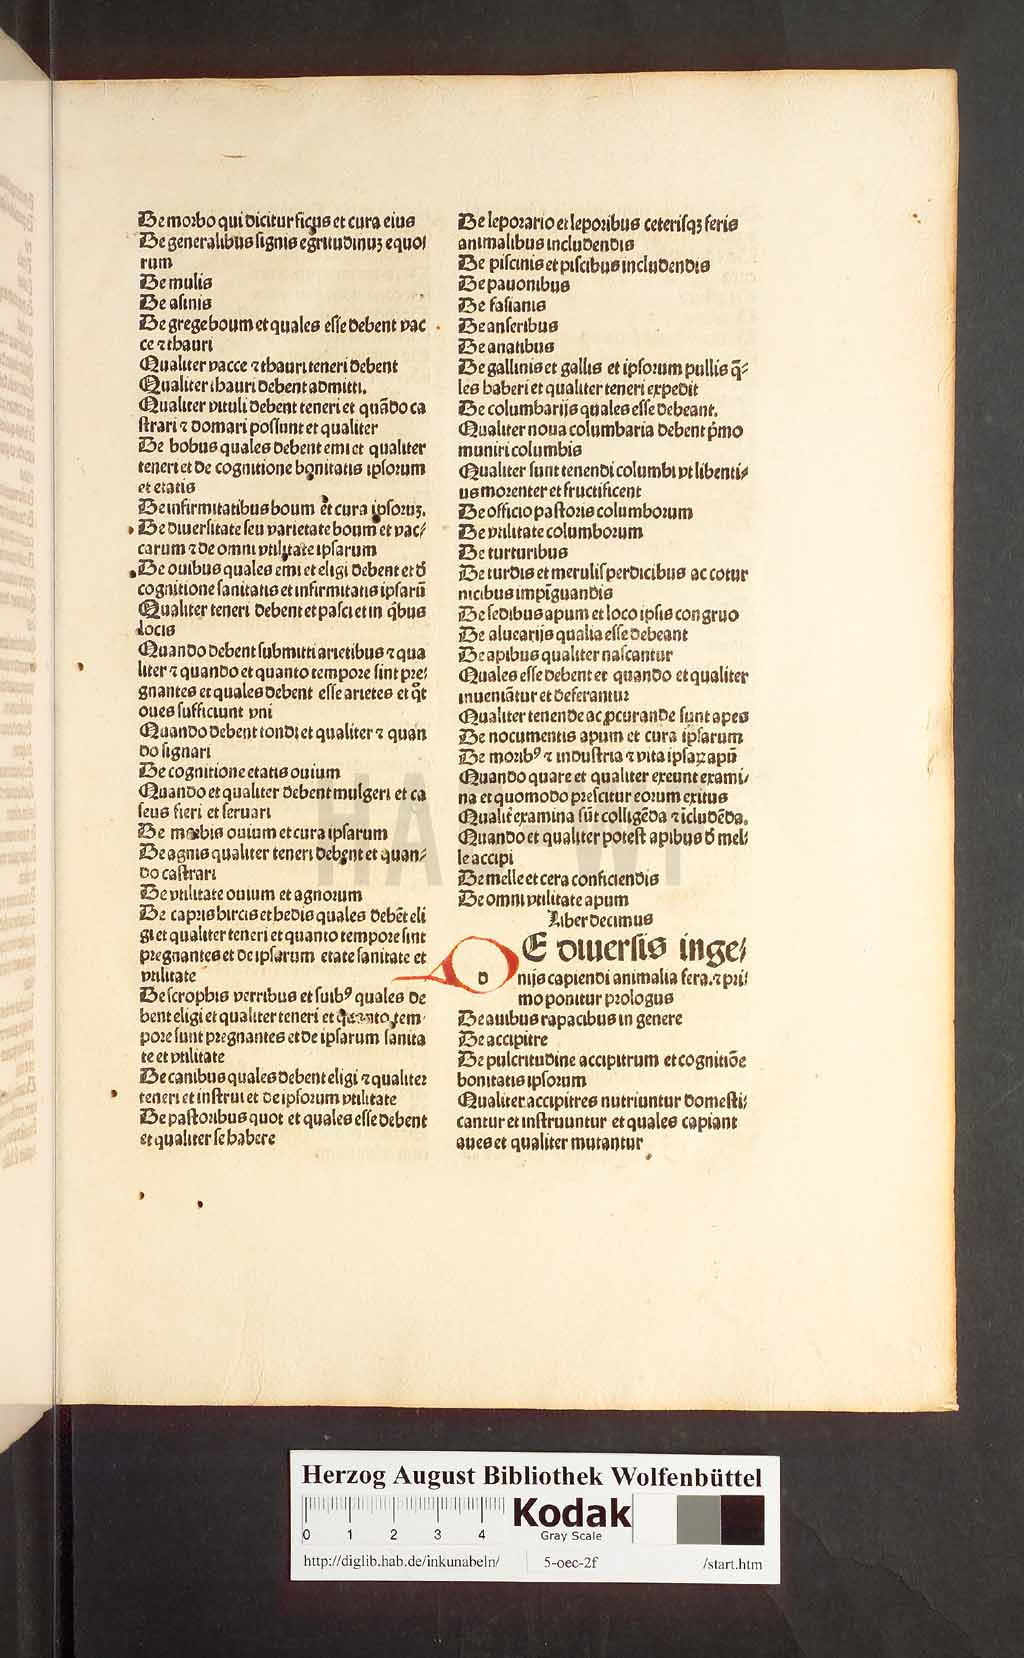 De morbo qui dicitur ficus et cura eius
De generalibus signis egritudinuꝫ equoꝛ
rum
De mulis
De asinis
De grege boum et quales esse debent vac
ce ⁊ thauri
Qualiter vacce ⁊ thauri teneri debent
Qualiter thauri debent admitti.
Qualiter vituli debent teneri et quādo ca
strari ⁊ domari possunt et qualiter
De bobus quales debent emi et qualiter
teneri et de cognitione bonitatis ipsorum
et etatis
De infirmitatibus boum et cura ipsoruꝫ.
De diuersitate seu varietate boum et vac⸗
carum ⁊ de omni vtilitate ipsarum
De ouibus quales emi et eligi debent et d̄
cognitione sanitatis et infirmitatis ipsarū
Qualiter teneri debent et pasci et in q̇bus
locis
Quando debent submitti arietibus ⁊ qua
liter ⁊ quando et quanto tempore sint pre⸗
gnantes et quales debent esse arietes et q̄t
oues sufficiunt vni
Quando debent tondi et qualiter ⁊ quan
do signari
De cognitione etatis ouium
Quando et qualiter debent mulgeri et ca
seus fieri et seruari
De morbis ouium et cura ipsarum
De agnis qualiter teneri debent et quan⸗
do castrari
De vtilitate ouium et agnorum
De capris hircis et hedis quales debēt eli
gi et qualiter teneri et quanto tempore sint
pregnantes et de ipsarum etate sanitate et
vtilitate
De scrophis verribus et suibꝰ quales de
bent eligi et qualiter teneri et quanto tem
pore sunt pregnantes et de ipsarum sanita
te et vtilitate
De canibus quales debent eligi ⁊ qualiter
teneri et instrui et de ipsorum vtilitate
De pastoribus quot et quales esse debent
et qualiter se habere
De leporario et leporibus ceterisqꝫ feris
animalibus includendis
De piscinis et piscibus includendis
De pauonibus
De fasianis
De anseribus
De anatibus
De gallinis et gallis et ipsorum pullis q̄⸗
les haberi et qualiter teneri expedit
De columbarijs quales esse debeant.
Qualiter noua columbaria debent p̄mo
muniri columbis
Qualiter sunt tenendi columbi vt libenti⸗
us morenter et fructificent
De officio pastoris columborum
De vtilitate columborum
De turturibus
De turdis et merulis perdicibus ac cotur
nicibus impīguandis
De sedibus apum et loco ipsis congruo
De aluearijs qualia esse debeant
De apibus qualiter nascantur
Quales esse debent et quando et qualiter
inueniātur et deferantur
Qualiter tenende ac ꝓcurande sunt apes
De nocumentis apum et cura ipsarum
De moribꝰ ⁊ industria ⁊ vita ipsaꝝ apū
Quando quare et qualiter exeunt exami⸗
na et quomodo prescitur eorum exitus
Qualit̄ examina sūt colligēda ⁊ icludēda.
Quando et qualiter potest apibus d̄ mel⸗
le accipi
De melle et cera conficiendis
De omni vtilitate apum
Liber decimus
d
E diuersis inge⸗
nijs capiendi animalia fera.⁊ pri⸗
mo ponitur prologus
De auibus rapacibus in genere
De accipitre
De pulcritudine accipitrum et cognitiōe
bonitatis ipsorum
Qualiter accipitres nutriuntur domesti⸗
cantur et instruuntur et quales capiant
aues et qualiter mutantur
HAB-WF
Herzog August Bibliothek Wolfenbüttel
0 1 2 3 4
Kodak
Gray Scale
http://diglib.hab.de/inkunabeln/ 5-oec-2f /start.htm